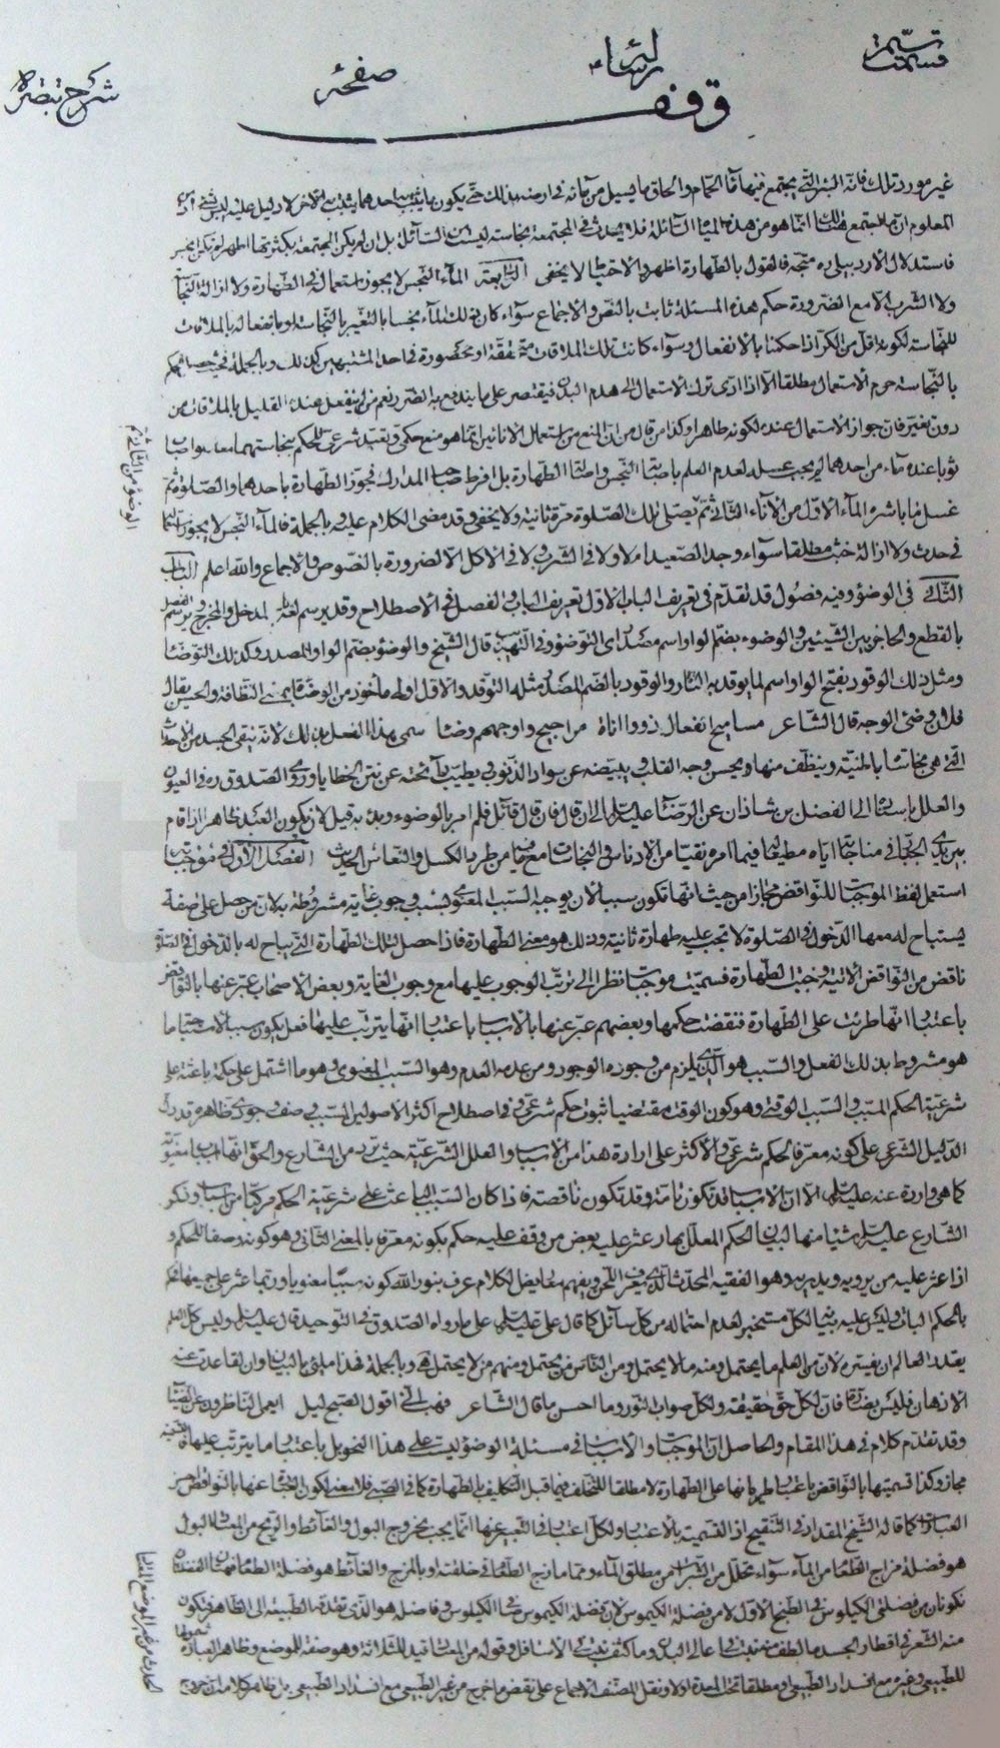 صفحة
شرح تبصره
وقف
غير مورد تلك فانه البئر التي يجتمع فيها ماء الحمام والحاق ما يسيل من مائه في ارضه بذلك حتى يكون ما يثبت لاحدهما يثبت للاخر لا دليل عليه
المعلوم ان ما يجتمع هناك انما هو من هذه المياه السائلة فلا يحدث في المجتمعة نجاسة ليست في السائل بل ان لم يكن المجتمعة بكثرتها اطهر لم تكن انجس
فاستدلال الاردبيلي ره متجه فالقول بالطهارة اظهر والاحتياط لا يخفى الرابعة الماء النجس لا يجوز استعماله في الطهارة ولا ازالة النجاسة
ولا الشرب الا مع الضرورة حكم هذه المسئلة ثابت بالنص والاجماع سواء كان ذلك الماء نجسا بالتغير بالنجاسة او بانفعاله بالملاقات
للنجاسة لكونه اقل من الكر اذا حكمنا بالانفعال وسواء كانت تلك الملاقات متحققة او محصورة في احد المشتبهين كذلك وبالجملة فحيث حكم
بالنجاسة حرم الاستعمال مطلقا الا اذا ادى ترك الاستعمال الى هدم البدن فيقتصر على ما يندفع به الضرر نعم من لم ينفعل عنده القليل بالملاقات من
دون تغير فان جواز الاستعمال عنده لكونه طاهرا وكذا من قال من ان المنع من استعمال الانائين انما هو منع حكمي وتعبد شرعي للحكم بنجاستهما معا
ثوبا عنده ماء من احدهما لم يجب غسله لعدم العلم باصابة النجس واصالة الطهارة بل افرط صاحب المدارك فجوز الطهارة باحدهما والصلوة ثم
غسل ما باشره الماء الاول من الاناء الثاني ثم يصلي تلك الصلوة مرة ثانية ولا يخفى وقد مضى الكلام عليه وبالجملة فالماء النجس لا يجوز استعماله
في حدث ولا ازالة خبث مطلقا سواء وجد الصعيد ام لا ولا في الشرب ولا في الاكل الا لضرورة بالنصوص والاجماع والله اعلم الباب
الثاني في الوضوء وفيه فصول قد تقدم في تعريف الباب الاول تعريف الباب والفصل في الاصطلاح وقد يرسم لغة بالمدخل والمخرج
بالقطع والحاجز بين الشيئين والوضوء بضم الواو اسم مصدر اي التوضؤ وفي التهذيب قال الشيخ والوضوء بضم الواو المصدر وكذلك التوضأ
ومثل ذلك الوقود بفتح الواو اسم لما يوقد به النار والوقود بالضم المصدر مثله التوقد والاول اولى مأخوذ من الوضاءة بمعنى النظافة والحسن يقال
فلان وضئ الوجه قال الشاعر مساميح الفعال ذووا اناة مراجيح واوجههم وضاء سمى بهذا الفعل بذلك لانه ينقى الجسد من الاحداث
التي هي نجاسات بالمنية وينظف منها ويحسن وجه القلب ويبيضه عن سواد الذنوب يطيب رائحته عن نتن الخطايا وروى الصدوق ره في العيون
والعلل باسناده الى الفضل بن شاذان عن الرضا عليه السلام الى ان قال فان قال قائل فلم امر بالوضوء وبدء به قيل لان يكون العبد طاهرا اذا قام
بين يدي الجبار في مناجاته اياه مطيعا له فيما امره نقيا من الادناس والنجاسات مع ما فيه من طرد الكسل والنعاس الحديث الفصل الاول في موجباته
استعمل لفظ الموجبات للنواقض مجازا من حيث انها تكون سببا لان يوجبه السبب المعنوي بسبب وجوب غاية مشروطة به لان من حصل على صفة
يستباح له معها الدخول في الصلوة لا تجب عليه طهارة ثانية وذلك هو معنى الطهارة فاذا حصل لتلك الطهارة التي يباح له بالدخول في الصلوة
ناقض من النواقض الاتية وجبت الطهارة فسميت موجبات نظرا الى ترتب الوجوب عليها مع وجوب الغاية وبعض الاصحاب عبر عنها بالنواقض
باعتبار انها طرئت على الطهارة فنقضت حكمها وبعضهم عبر عنها بالاسباب باعتبار انها يترتب عليها فعل يكون سببا لاستباحة ما
هو مشروط بذلك الفعل والسبب هو الذي يلزم من وجوده الوجود ومن عدمه العدم وهو السبب المعنوي وهو ما اشتمل على حكمة باعثة على
شرعية الحكم المسبب والسبب الوقتي وهو كون الوقت مقتضيا ثبوت حكم شرعي وفي اصطلاح اكثر الاصوليين السبب وصف وجودي ظاهر وقد دل
الدليل الشرعي على كونه معرفا لحكم شرعي والاكثر على ارادة هذا من الاسباب والعلل الشرعية حيث ترد من الشارع والحق انها اسباب معنوية
كما هي واردة عنه عليه السلام الا ان الاسباب قد تكون تامة وقد تكون ناقصة فاذا كان السبب الباعث على شرعية الحكم مركبا من اسباب وذكر
الشارع عليه السلام شيئا منها لبيان الحكم المعلل بها عثر عليه بعض من وقف عليه حكم بكونه معرفا بالمعنى الثاني وهو كونه وصفا للحكم و
اذا عثر عليه من يرويه ويدريه وهو الفقيه المحدث الذي يعرف اللحن ويفهم معاريض الكلام عرف بنور الله كونه سببا معنويا وربما عثر على جميعها
بالحكم الباث وليس عليه بيانها لكل مستخبر لعدم احتماله من كل سائل كما قال علي عليه السلام على ما رواه الصدوق في التوحيد قال عليه السلام وليس كل العلم
يقدر العالم ان يفسره لان من العلم ما يحتمل ومنه ما لا يحتمل ومن الناس من يحتمل ومنهم من لا يحتمل وبالجملة فهذا ملئ بالبيان وان تقاعدت عنه
الاذهان فليس بضائر فان لكل حق حقيقة ولكل صواب نور وما احسن ما قال الشاعر فهب اني اقول الصبح ليل ايعمى الناظرون عن الضياء
وقد تقدم كلام في هذا المقام والحاصل ان الموجبات والاسباب في مسئلة الوضوء ليست على هذا النحو بل باعتبار ما يترتب عليها
مجاز وكذا تسميتها بالنواقض باعتبار طريانها على الطهارة لا مطلقا للتخلف فيما قبل التكليف بالطهارة كما في الصبي فلا معنى لكون التعبير عنها بالنواقض احسن
العبارات كما قاله الشيخ المقداد في التنقيح اذ التسمية بالاعتبار ولكل اعتبار في التعبير عنها انما يجب بخروج البول والغائط والريح من المعتاد البول
هو فضلة مزاج الطعام من الماء سواء تحلل من الشراب من مطلق الماء ومما مازج الطعام في خلقته او بالمزج والغائط هو فضلة الطعام
تكونان من فضلتي الكيلوس في الطبخ الاول لا من فضلة الكيموس لان فضلة الكيموس في الكيلوس وفاضله هو الذي تقذفه الطبيعة الى الظاهر فتكون
منه الشعر في اقطار الجسد ما لطف منه نبت في اعالي البدن وما كثف نبت في الاسافل وقوله من المعتاد قيد للثلاثة وهو صفة للموضع وظاهر العبارة
للطبيعي وغيره مع انسداد الطبيعي ومطلقا تحت المعدة اولا ونقل المصنف الاجماع على نقض ما خرج من غير الطبيعي مع انسداد الطبيعي بل ظاهر كلامه ان خروج
الوضوء من الثاني ثم